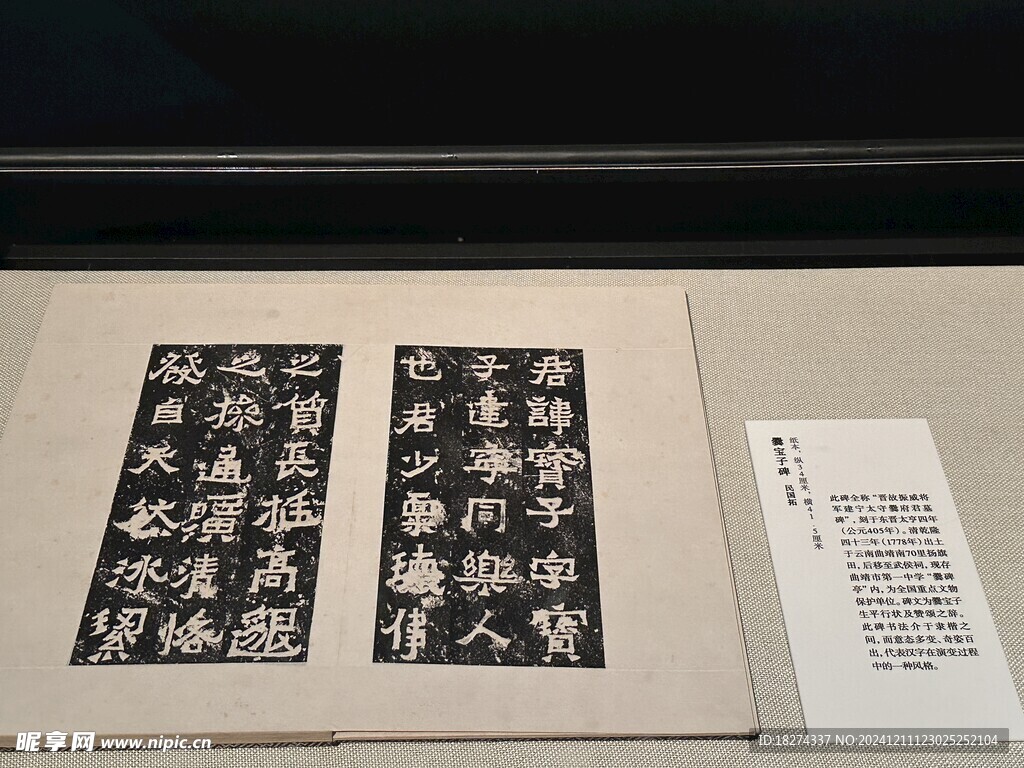 君諱寶子字寶
子建寧同樂人
也君少稟瓌偉
之質長挺高邈
之操通曠清恪
發自天然冰絜
爨宝子碑 民国拓
纸本，纵34厘米，横41.5厘米
此碑全称“晋故振威将
军建宁太守爨府君墓
碑”，刻于东晋太亨四年
（公元405年）。清乾隆
四十三年（1778年）出土
于云南曲靖南70里扬旗
田，后移至武侯祠，现存
曲靖市第一中学“爨碑
亭”内，为全国重点文物
保护单位。碑文为爨宝子
生平行状及赞颂之辞。
此碑书法介于隶楷之
间，而意态多变、奇姿百
出，代表汉字在演变过程
中的一种风格。
昵享网 www.nipic.cn
ID:18274337 NO:20241211123025252104